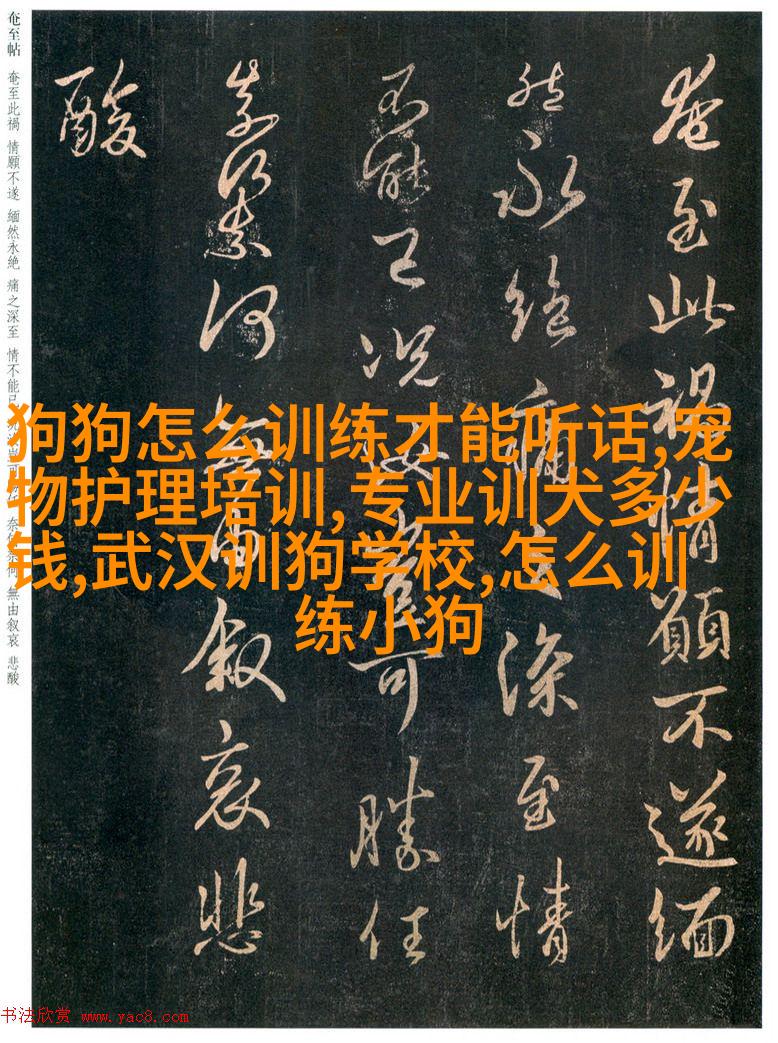 奄至帖 奄至此禍 情願不遂 緬然永絶 痛之深至 情不能已
無由叙哀 悲酸
奄至此禍情願不遂緬
然永絶痛之深至情
不能已況
可勝任
奈何奈何
叙哀悲
酸
狗狗怎么训练才能听话,宠
物护理培训,专业训犬多少
钱,武汉训狗学校,怎么训
练小狗
书法欣赏 www.yac8.com